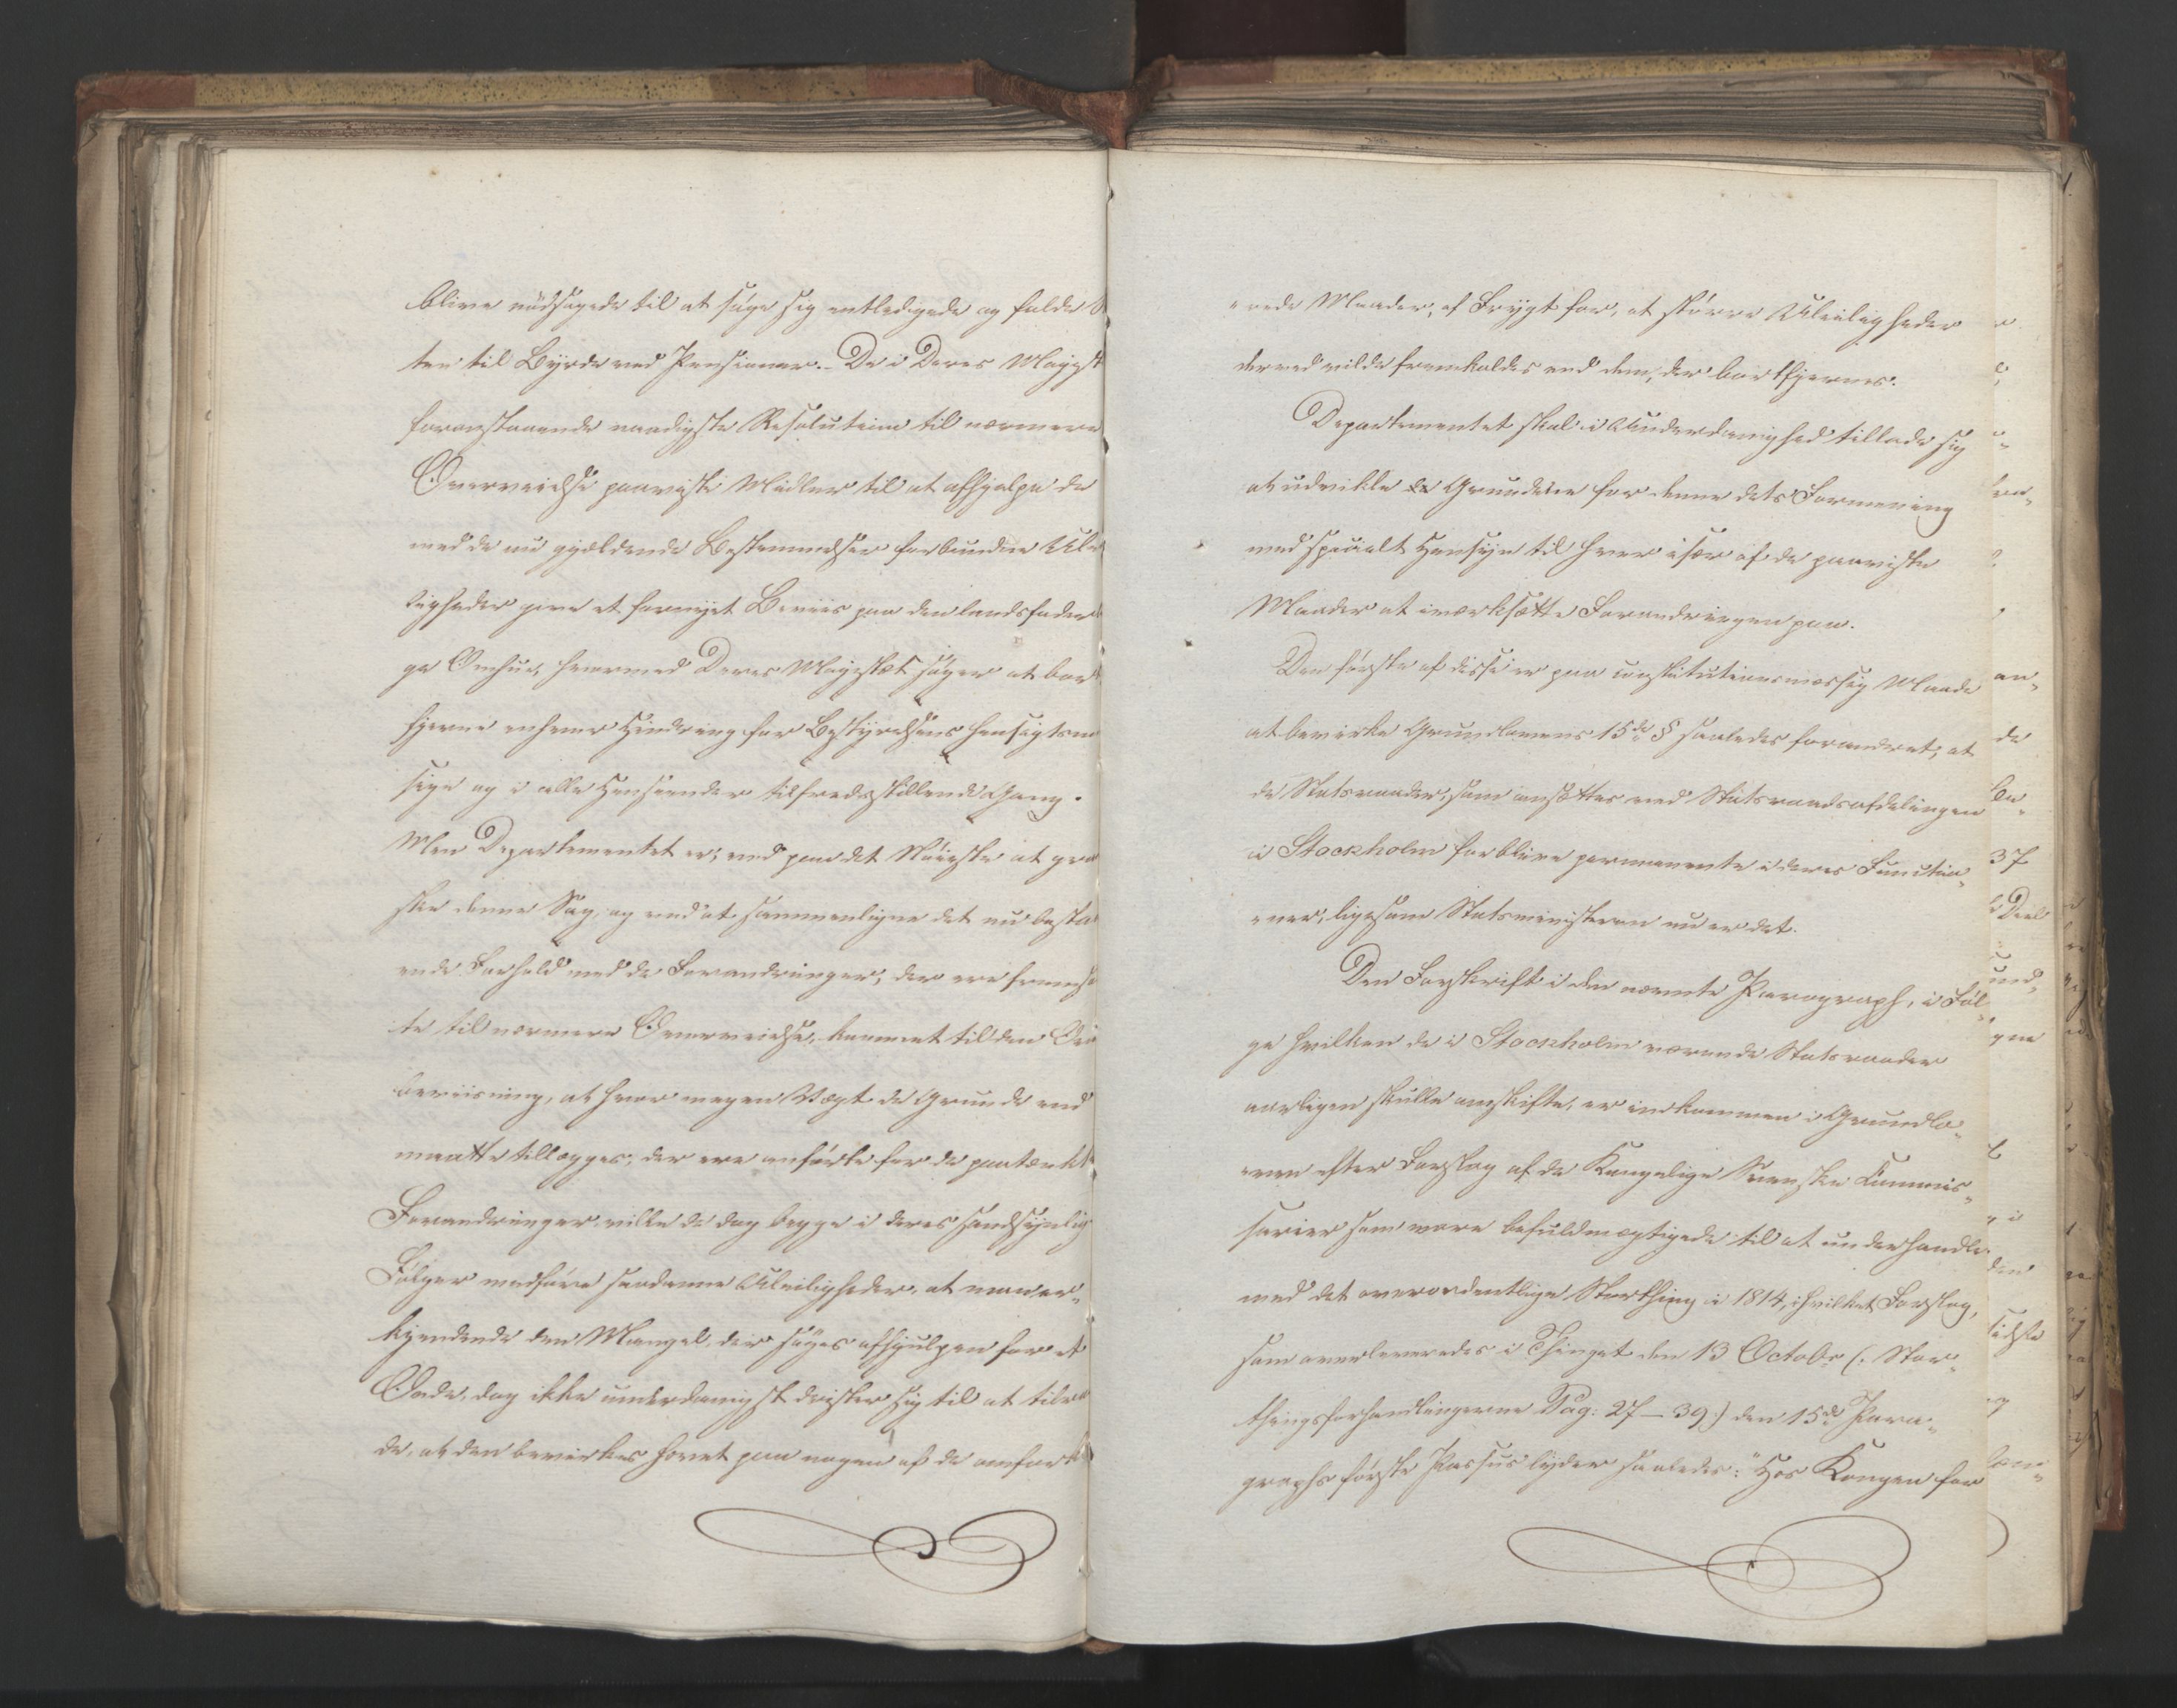 blive nödsagede til at söge sig entledigede og falde S
ten til Byrde ved Pensioner. De i Deres Majest
foranstaaende naadigste Resolution til nærmere
Overveielse paaviste Midler til at afhjælpe de
med de nu gjældende Bestemmelser forbundne Ulei
ligheder give et fornyet Beviis paa den landsfaderli
ge Omhue, hvormed Deres Majestæt söger at bort
fjerne enhver Hindring for Bestyrelsens hensigtsmæ
sige og i alle Henseender tilfredsstillende Gang.
Men Departementet er, ved paa det Nöieste at gran
ske denne Sag, og ved at sammenligne det nu bestaa
ende Forhold med de Forandringer, der ere fremsa
te til nærmere Overveielse, kommet til den Over
beviisning, at hvor megen Vægt de Grunde end
maatte tillægges, der ere anförte for de paatænkte
Forandringer ville de dog begge i deres sandsynlig
Fölger medföre saadanne Uleiligheder, at man er-
kjendende den Mangel, der söges afhjulpen for et
Onde, dog ikke underdanigst drister sig til at tilraa
de, at den bevirkes hævet paa nogen af de anfört
"rede Maader, af Frygt for, at större Uleiligheder
derved vilde fremkaldes end dem, der bortfjernes.
Departementet skal i Underdanighed tillade sig
at udvikle Grundene for denne dets Formening
med specialt Hensyn til hver især af de paaviste
Maader at iværksætte Forandringen paa.
Den förste af disse er paa constitutionsmæssig Maade
at bevirke Grundlovens 15de § saaledes forandret, at
de Statsraader, som ansættes ved Statsraadsafdelingen
i Stockholm forblive permanente i deres Functio-
"ner, ligesom Statsministeren nu er det.
Den Forskrift i den nævnte Paragraph, i Föl-
ge hvilken de i Stockholm værende Statsraader
aarligen skulle omskifte, er indkommen i Grundlo-
"ven efter Forslag af de Kongelige Svenske Commis-
sarier som vare befuldmægtigede til at underhandle
med det overordentlige Storthing i 1814, i hvilket Forslag,
som overleveredes i Thinget den 13 Octobr (: Stor-
thingsforhandlingerne Pag: 27 – 39:) den 15de Para-
graphs förste Passus lyder saaledes: "Hos Kongen for